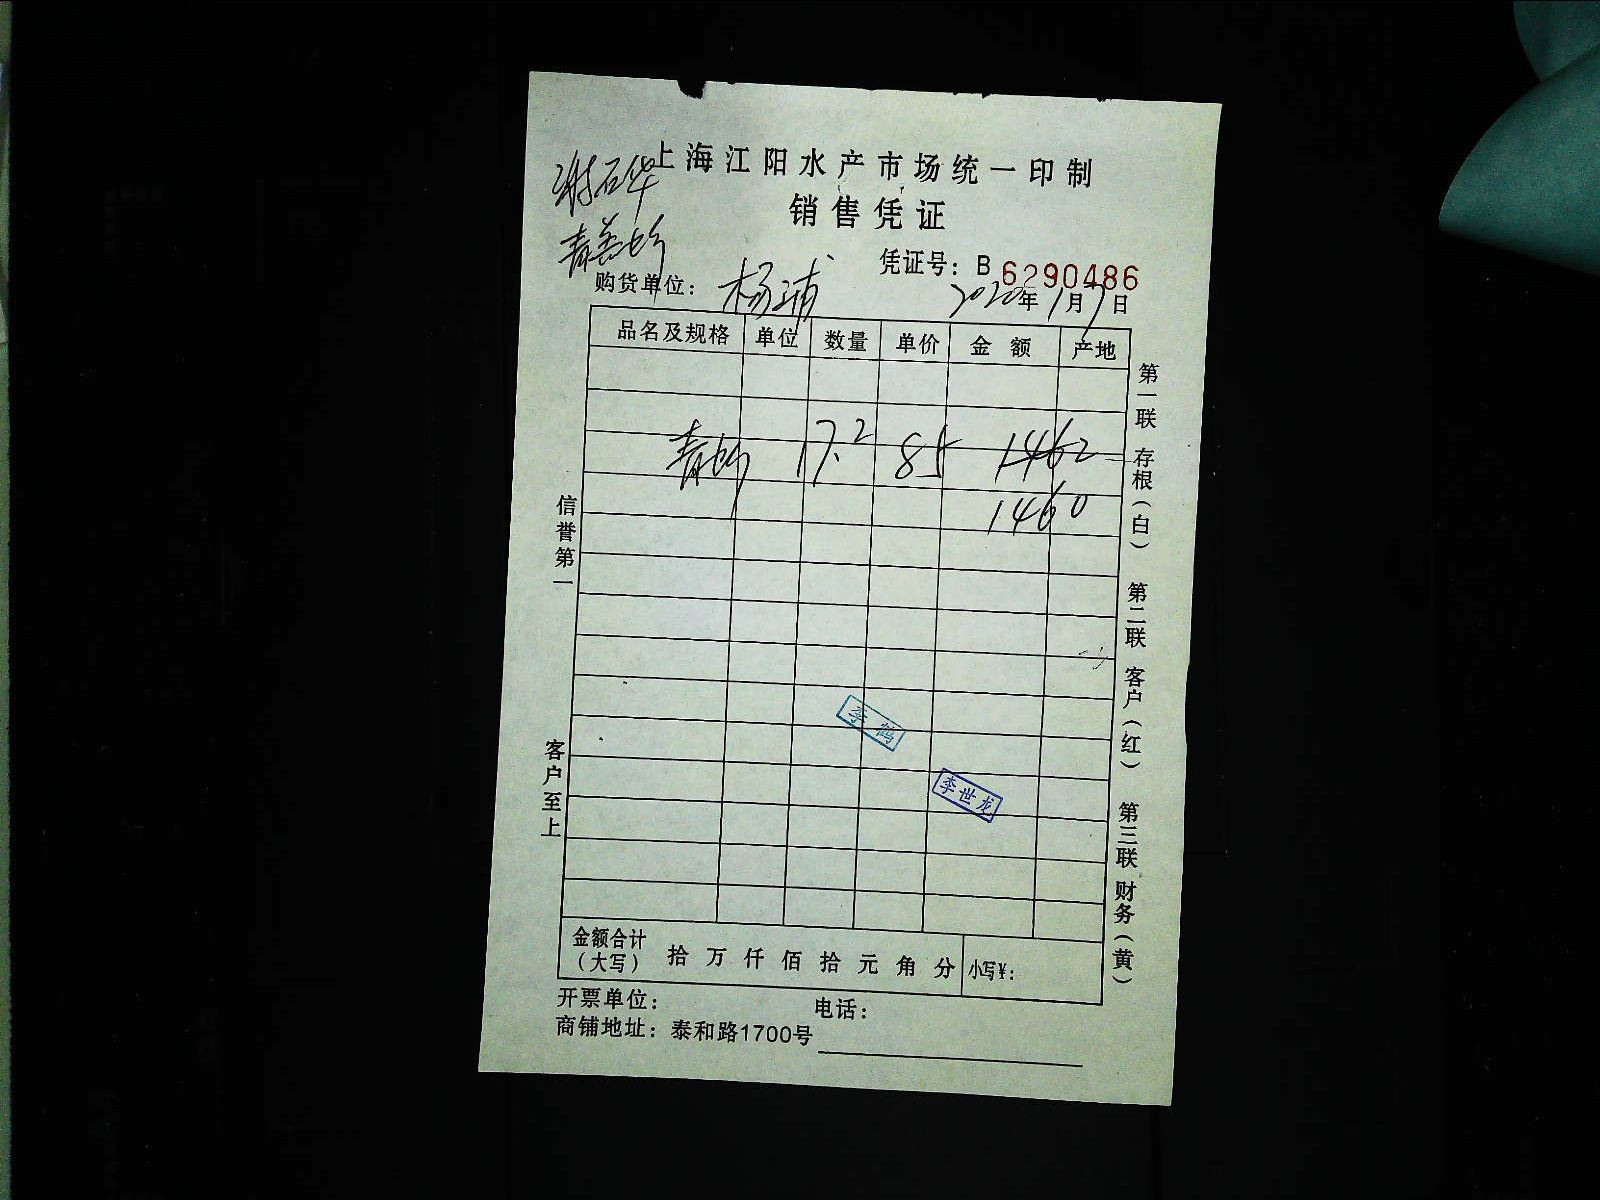 上海江阳水产市场统一印制
销售凭证
凭证号：B 6290486
购货单位：杨浦 2020年1月7日
品名及规格 单位 数量 单价 金额 产地
17.2 85 1462
1460
信誉第一
客户至上
第一联 存根（白） 第二联 客户（红） 第三联 财务（黄）
李鹤
李世龙
金额合计（大写） 拾 万 仟 佰 拾 元 角 分 小写¥：
开票单位： 电话：
商铺地址：泰和路1700号